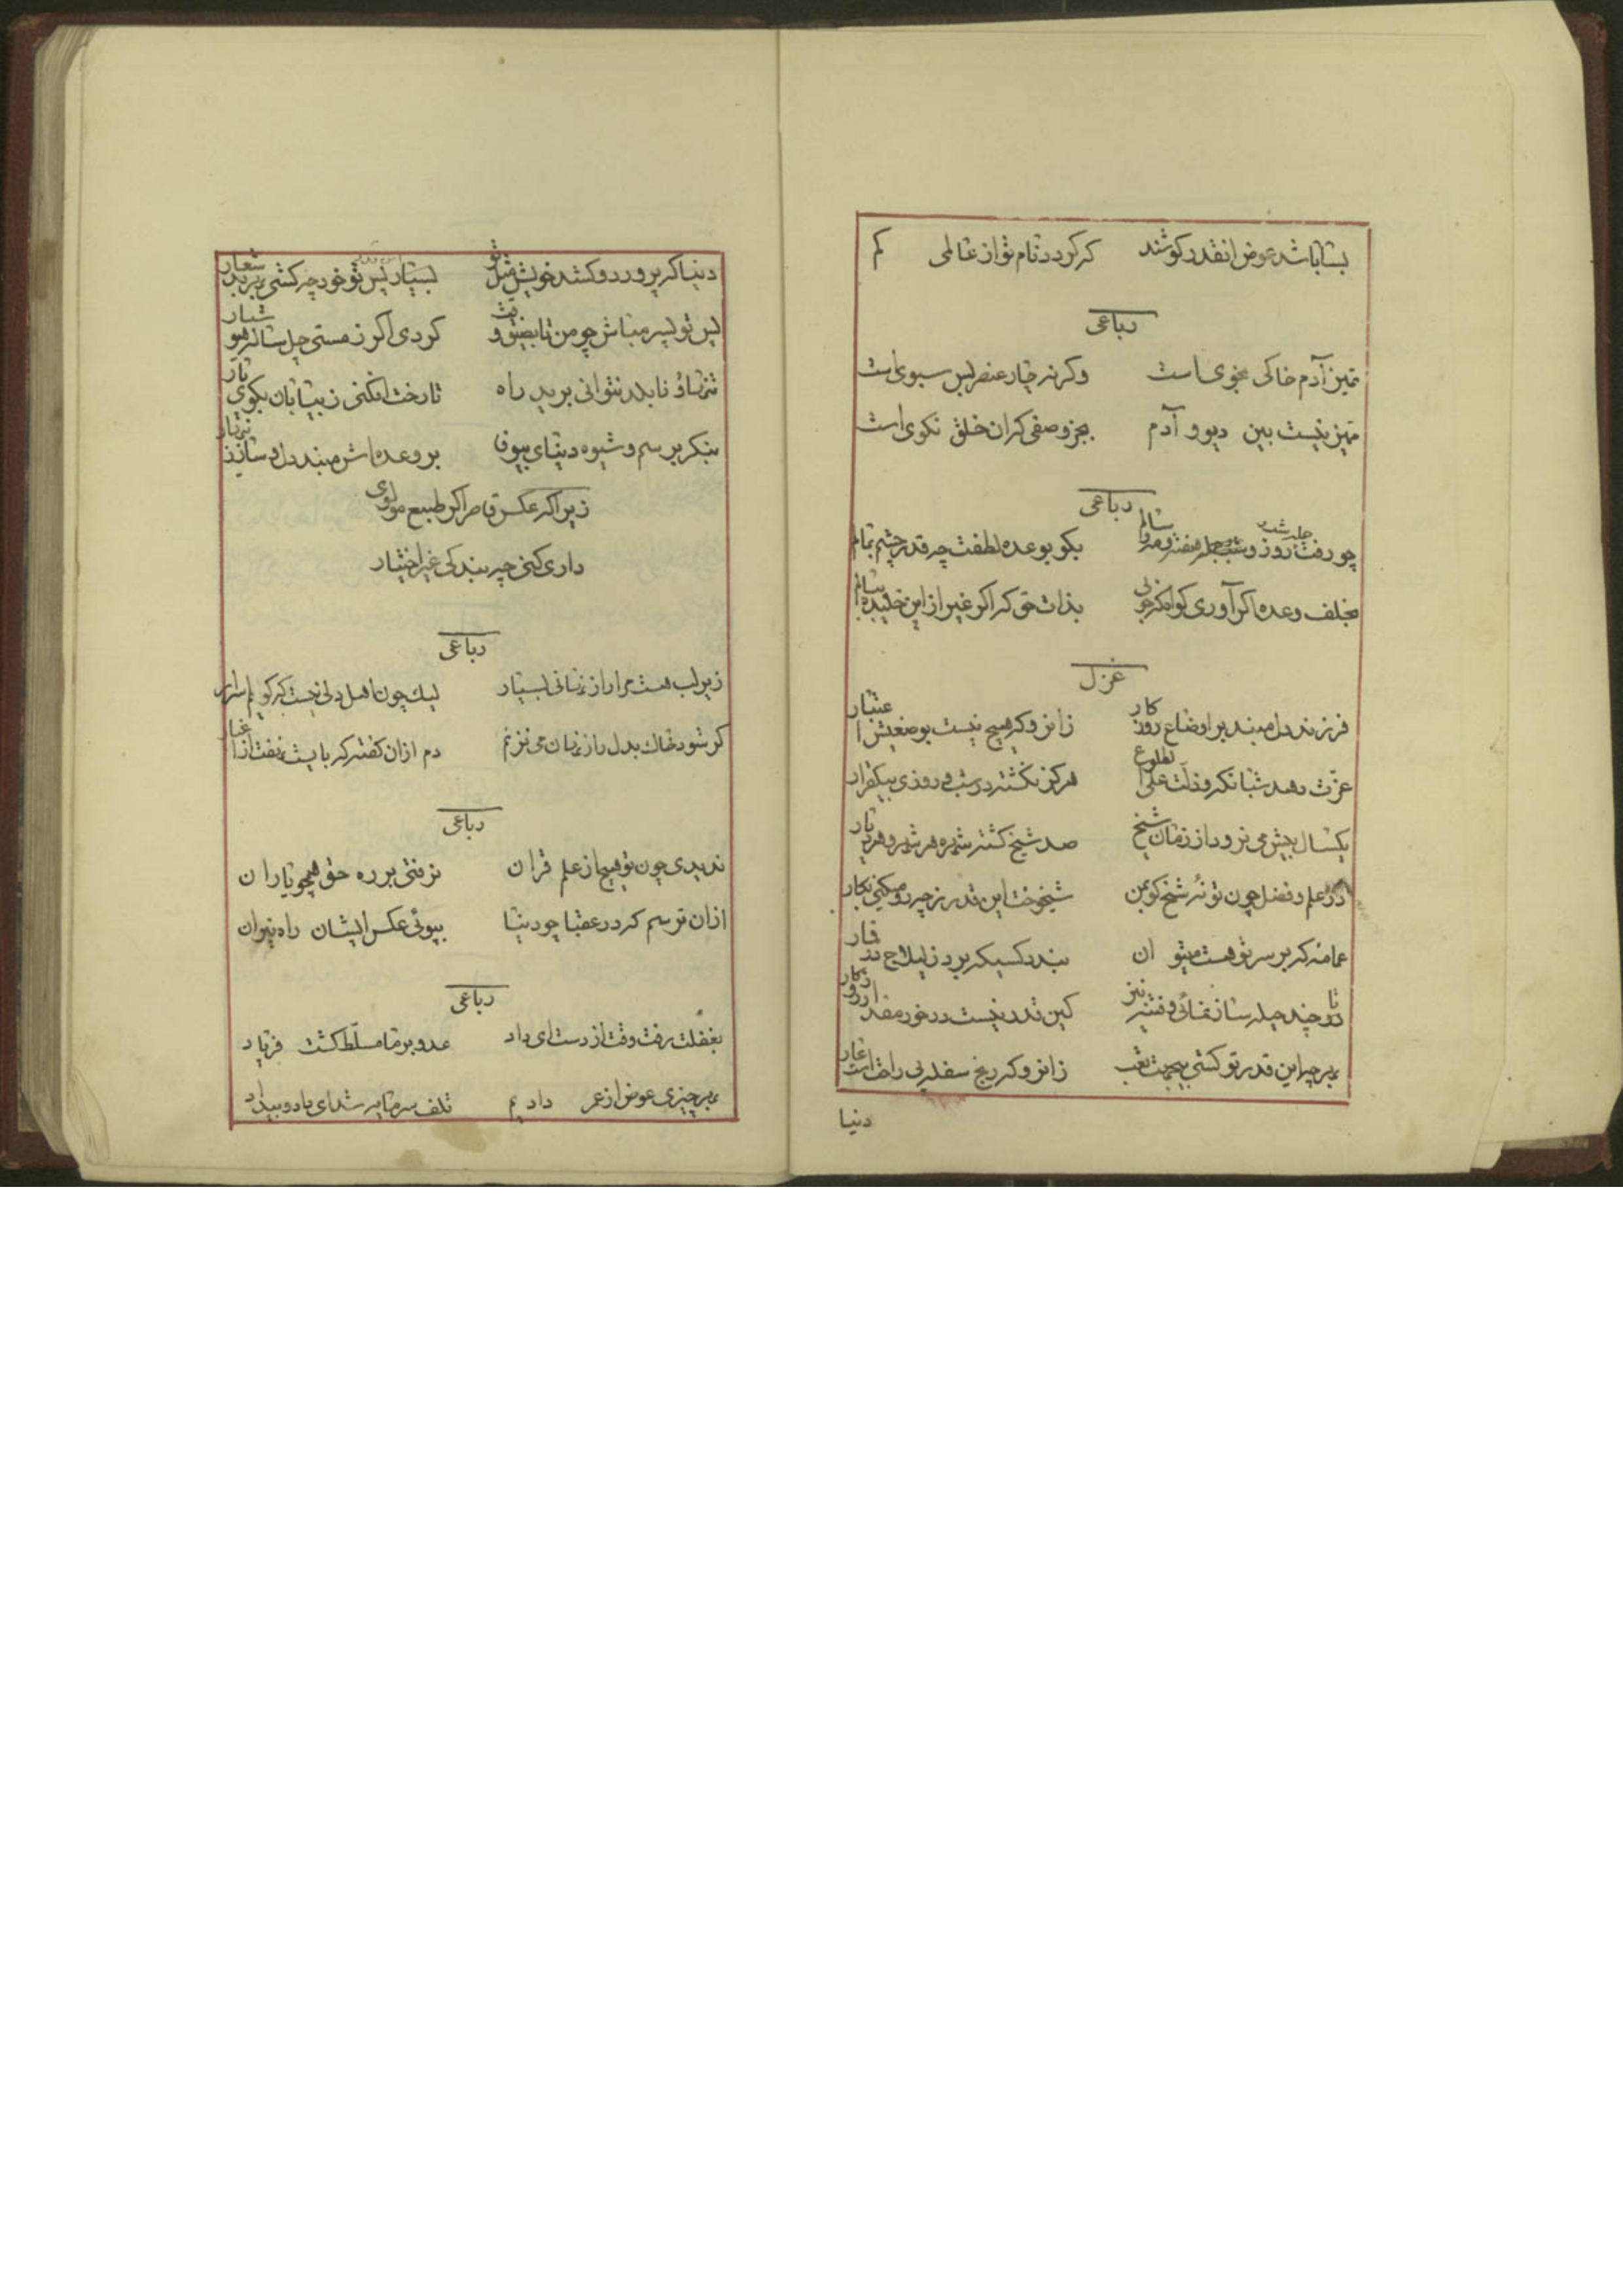 بسا باشد عوض انقدر کوشند که کردد نام تو از عالمی کم
رباعی
تمیز آدم خاکی بخوی است وگرنه چار عنصر بس سبوی است
تمیز نیست بین دیو و آدم بجز وصفی که ان خلق نکوی است
رباعی
چو رفت روز و شب و هفته و مه و سال بکو بوعده لطفت چه قدر چشم بمالم
بخلف وعده اکر آوری بذات حق که اکر غیر از این
غزل
فرزند دل مبند بر اوضاع روزکار زانرو که هیچ نیست بوضعیش اعتبار
عزت دهد شبانکه و ذلت علی الطلوع هرکز نکشته در شب و روزی بیکقرار
یکسال بیش می نرود از زمان شیخ صد شیخ کشته شهره هر شهر و هر دیار
در علم و فضل چون تو نه شیخ کو بمن شیخوخت این قدر ز چه رو میکنی بکار
عمامه که بر سر تو هست میتوان بندد کسیکه برد ز لیلاج در قمار
تا چند حیله سازی و فتنه نیز کین قدر نیست در خور مقدار
بهر چه این قدر تو کشی بیجهت تعب زانرو که ریخ سفله بی راحت است عار
دنیا
دنیا که پرورد و کشد خویش مثل تو بسیار پس تو خود چه کشی بهر بد شعار
پس تو پسر مباش چو من کردی اکر ز مستی چل ساله هوشیار
تنها و نابلد نتوانی برید راه تا رخت افکنی ز بیابان بکوی یار
بنکر برسم و شیوه دنیای بیوفا بر وعده اش مبند دل و
زیرا که عکس قاصر اکر طبع مولوی
داری کنی چه بندکی غیر اختیار
رباعی
زیر لب هست مرا راز نهانی بسیار لیک چون اهل دلی نیست که کویم اسرار
کر شود خاک بدل راز زبان می نزنم دم ازان کفته که بایست نهفت از اغیار
رباعی
ندیدی چون تو هیچ از علم قران نرفتی بر ره حق همچو یاران
ازان ترسم که در عقبا چو دنیا بپوئی عکس ایشان راه نیران
رباعی
بغفلت رفت وقت از دست ای داد عدو بر ما مسلّط کشت فریاد
بهر چیزی عوض از عمر دادیم تلف سرمایه شد ای داد و بیداد